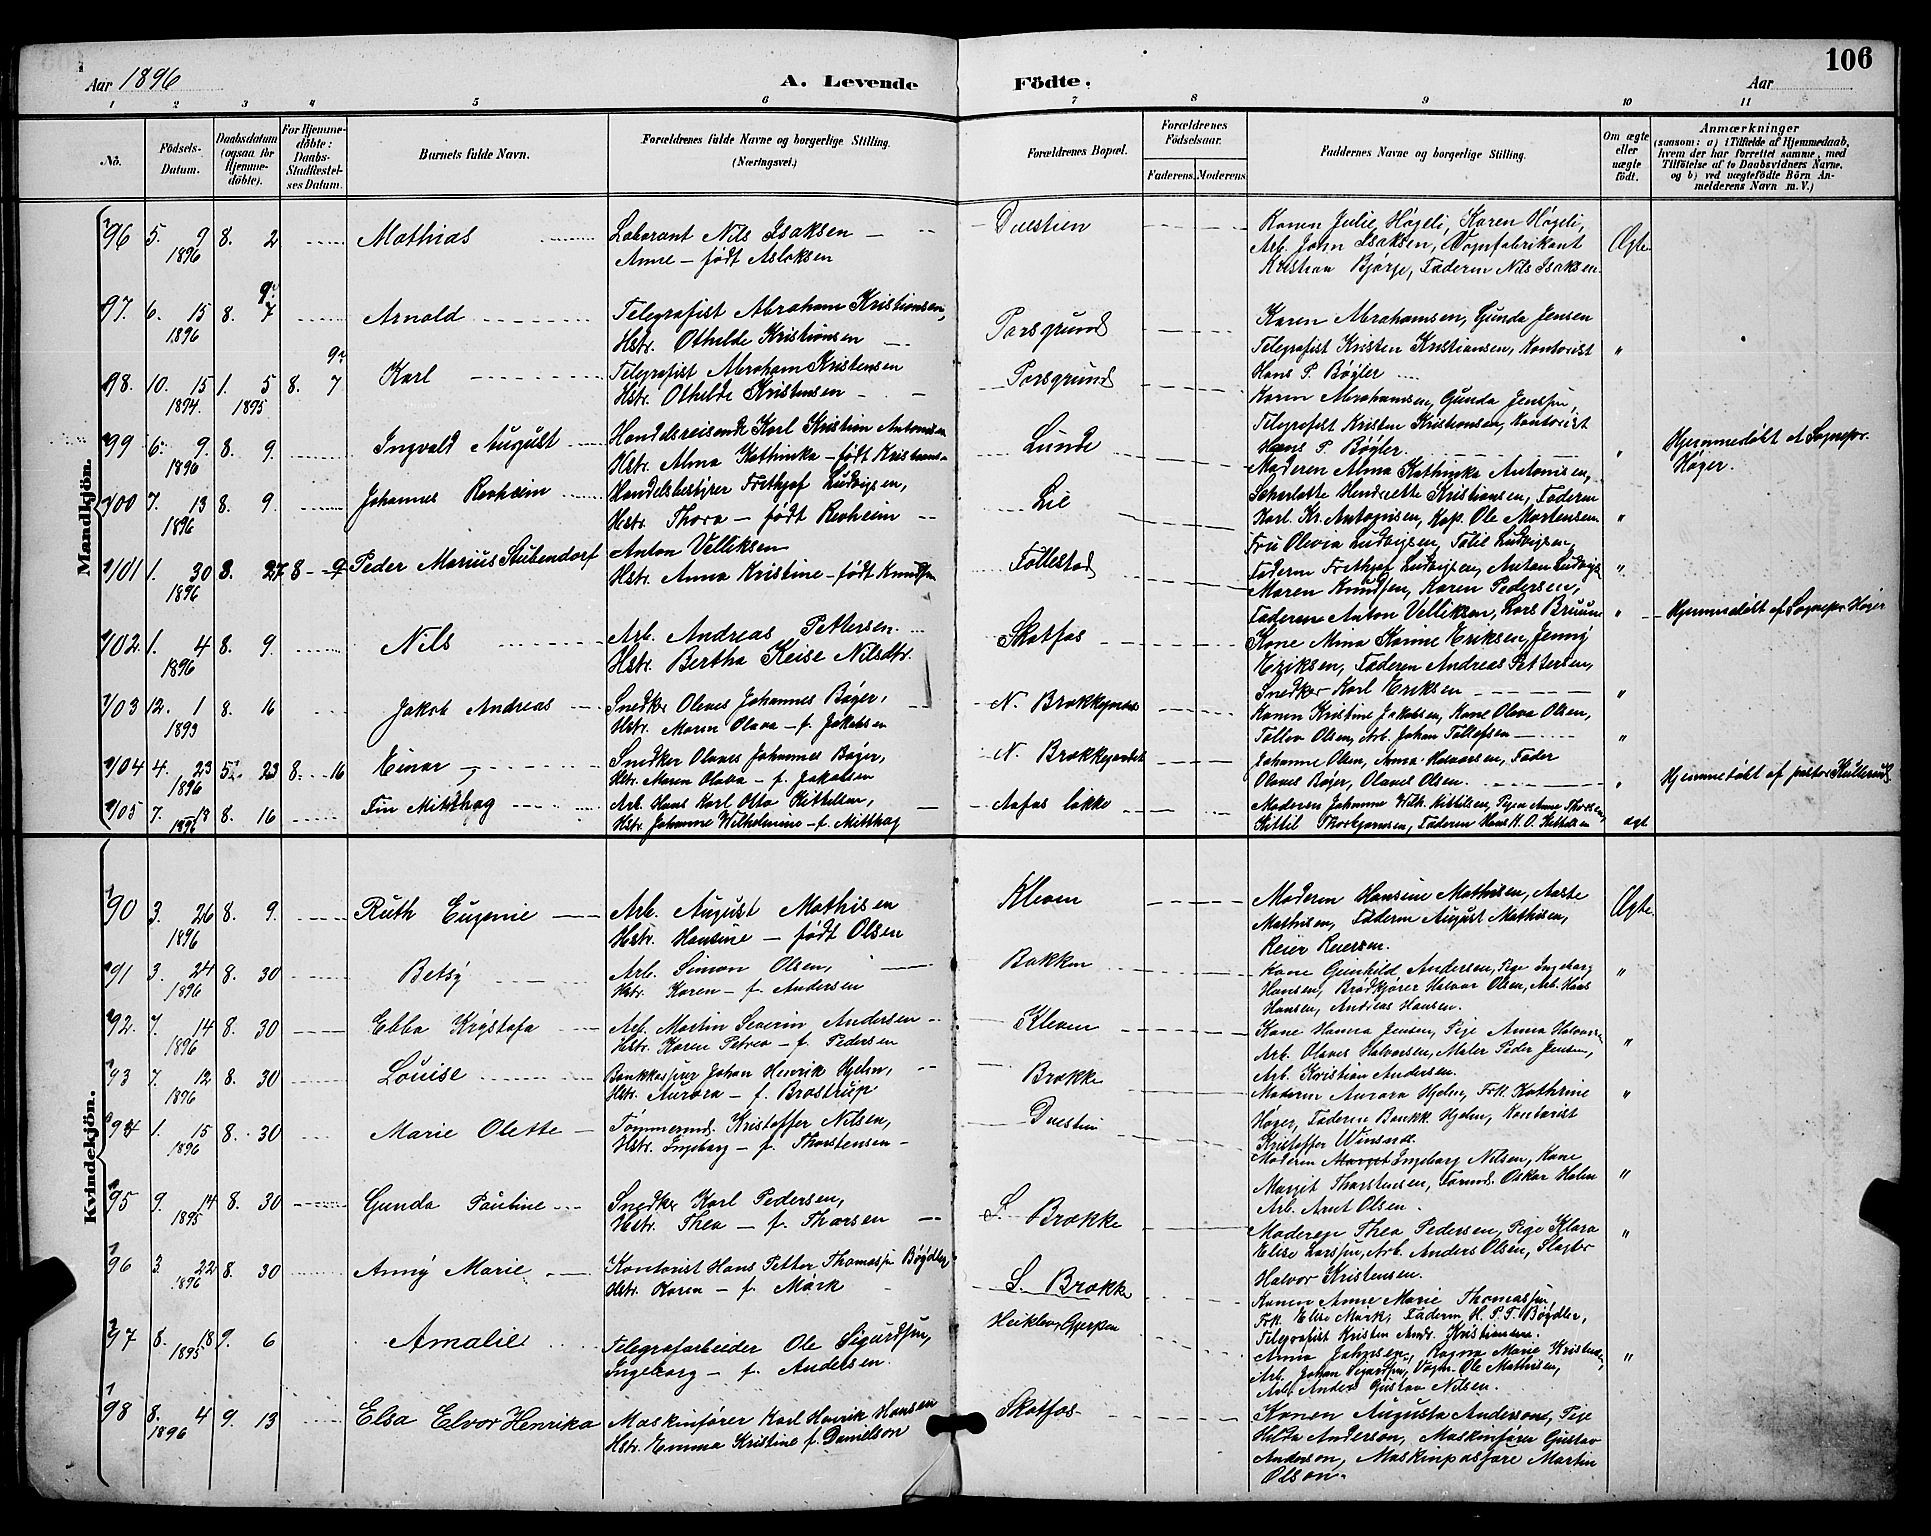 106
Aar 1896 A. Levende Födte. Aar
1 2 3 4 5 6 7 8 9 10 11
No. Födsels-Datum. Daabsdatum (ogsaa for Hjemmedöbte). For Hjemmedöbte: Daabs-Stadfæstelses Datum. Barnets fulde Navn. Forældrenes fulde Navne og borgerlige Stilling. (Næringsvei.) Forældrenes Bopæl. Forældrenes Födselsaar. Faderens. Moderens. Faddernes Navne og borgerlige Stilling. Om ægte eller uægte födt. Anmærkninger (saasom: a) i Tilfælde af Hjemmedaab, hvem der har forrettet samme, med Tilföielse af to Daabsvidners Navne, og b) ved uægtefödte Börn Anmelderens Navn m. V.)
Mandkjön.
96 5. 9 1896 8. 2 Mathias Laborant Nils Isaksen Duestien Konen Julie Høgeli, Karen Høgeli, Ægte
Anne - født Aslaksen Arb. John Isaksen, Vognfabrikant
Kristian Bjørge, Faderen Nils Isaksen.
97. 6. 15 1896 8. 7 Arnold Telegrafist Abraham Kristiansen, Porsgrund Karen Abrahamsen, Gunda Jensen
Hstr. Othilde Kristiansen Telegrafist Kristen Kristiansen, Kontorist "
Hans P. Bøgler
98. 10. 15 1894. 1. 5 1895 8. 7 Karl Telegrafist Abraham Kristensen Porsgrund Karen Abrahamsen, Gunda Jenssen,
Hstr. Othilde Kristensen Telegrafist Kristen Kristiansen, Kontorist
Hans P. Bøgler. "
99 6. 9 1896 8. 9. Ingvald August Handelsreisende Karl Kristian Antonisen Lunde Moderen Alma Kathinka Antonisen, Hjemmedøbt af Sognepr. Høyer.
Hstr. Alma Kathinka - født Kristians- Scharlotte Hendriette Kristiansen, Faderen
Karl Kr. Antonisen, Kap. Ole Mortensen "
100 7. 13 1896 8. 9. Johannes Revheim Handelsbestyrer Frethjof Ludvigsen, Lie Fru Olevia Ludvigsen,
Hstr. Thora - født Revheim Faderen Frethjof Ludvigsen, Anton Ludvigs "
101 1. 30 1896 3. 27 8 9 Peder Marius Stubendorf Anton Velliksen Follestad Maren Knudsen, Karen Pedersen,
Hstr. Anna Kristine - født Knudsen Faderen Anton Velliksen, Lars Bruun " Hjemmedøbt af Sognepr. Høyer
102. 1. 4 1896 8. 9. Nils Arb. Andreas Pettersen Skotfos Kone Mina Karine Eriksen, Jenny
Hstr. Bertha Keise Nilsdtr. Eriksen, Faderen Andreas Pettersen,
Snedker Karl Eriksen "
103 12. 1 1893 8. 16 Jakob Andreas Snedker Olaves Johannes Bøyer, N. Brækkegaard Konen Kristine Jakobsen, Kone Olava Olsen,
Hstr. Maren Olava - f. Jakobsen Tollov Olsen, Arb. Johan Tollefsen "
104 4. 23 1896 23 8. 16 Einar Snedker Olaves Johannes Bøyer, N. Brækkegaardet Johanne Olsen, Anna Halvorsen, Fader
Hstr. Maren Olava - f. Jakobsen Olaves Bøyer, Olaves Olsen. " Hjemmedøbt af pastor Kullerud
105 7. 18 1896 8. 16 Fin Mitthag Arb. Hans Karl Otto Kittilsen, Aafos løkke Moderen Johanne Wilh. Kittilsen, Pigen Anne Thorsen,
Hstr. Johanne Wilhelmine - f. Mitthag Kittil Thorbjørnsen, Faderen Hans K. O. Kittilsen ægt
Kvindekjön.
90 3. 26 1896 8. 9. Ruth Eugenie Arb. August Mathisen Kleven Moderen Hansine Mathisen, Aaste Ægte.
Hstr. Hansine - født Olsen Mathisen, Faderen August Mathisen,
Reier Reiersen.
91 3. 24 1896 8. 30 Betsy Arb. Simon Olsen, Bakken Kone Gunhild Andersen, Pige Ingeborg "
Hstr. Karen - f. Andersen Hansen, Brødkjører Halvor Olsen, Arb. Hans
Hansen, Andreas Hansen.
92. 7. 14 1896 8. 30 Ebba Krystofa Arb. Martin Severin Andersen Kleven Kone Hanna Jensen, Pige Anna Halvorsen "
Hstr. Karen Petrea - f. Pedersen Arb. Olaves Halvorsen, Maler Peder Jensen,
Arb. Kristian Andersen.
93 7. 12 1896 8. 30 Louise Bankkasjer Johan Henrik Hjelm, Brække Moderen Aurora Hjelm, Frk. Kathrine "
Hstr. Aurora - f. Brostrup Høyer, Faderen Bankk. Hjelm, Kontorist
Kristoffer Winsnæs
94 1. 15 1896 8. 30 Marie Olette Tømmermd. Kristoffer Nilsen, Duestien Moderen Ingeborg Nilsen, Kone
Hstr. Ingeborg - f. Thorstensen Margit Thorstensen, Formd. Oskar Holm "
Arb. Arnt Olsen.
95 9. 14 1895 8. 30 Gunda Pauline Snedker Karl Pedersen, L. Brække Moderen Thea Pedersen, Pige Klara "
Hstr. Thea - f. Thorsen Elise Larssen, Arb. Anders Olsen, Slagter
Halvor Kristensen.
96 3. 22 1896 8. 30 Anny Marie Kontorist Hans Petter Thomassen Bøgdler L. Brække Konen Anne Marie Thomassen,
Hstr. Karen - f. Mørk Frk. Elise Mørk, Faderen H. P. T. Bøydler,
Telegrafist Kristen Andr. Kristiansen.
97 8. 18 1895 9. 6 Amalie Telegrafarbeider Ole Sigurdsen, Heiklev, Gjerpen Anna Johnsen, Ragna Marie Kristensen, "
Ingeborg - f. Andersen. Arb. Johan Sigurdsen, Vogn. Ole Mathisen,
Arb. Anders Gustav Nilsen.
98 8. 4 1896 9. 13 Elsa Elvor Henrika Maskinfører Karl Henrik Hansen Skotfos Konen Augusta Anderson, Pige
Hstr. Emma Kristine f. Danielson Hilda Anderson, Maskinfører Gustav
Anderson, Maskinpasser Martin
Olson.